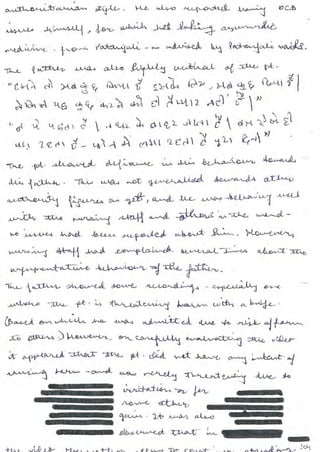 authoritarian style. He also reported having OCD
issues himself, for which he's taking ayurvedic
medicine - from Patanjali - as advised by Patanjali vaids.
The father was also highly critical of the pt.
"हमने तो सब कुछ किया है इसके लिए, सब कुछ दिया है
लेकिन यह कुछ करने को ही तैयार नहीं है।"
"न ये पढ़ता है। घर के बाहर रहता है।
पड़ा रहता है - फोन में लगा रहता है पूरा दिन।"
The pt showed defiance in his behaviour towards
his father. This was not generalised towards other
authority figures as yet, and he was behaving well
with the nursing staff and others in the ward -
no issues had been reported about him. However,
nursing staff had complained several times about the
argumentative behaviour of the father.
The father showed some recordings - especially one
where the pt. is threatening harm with a knife.
(Based on which he was admitted due to risk of harm
to others) However, on carefully evaluating the video
it appeared that the pt. did not have any intent of
causing harm - and was merely threatening due to
irritation or for
some other
gain. It was also
observed that in
the video the mother